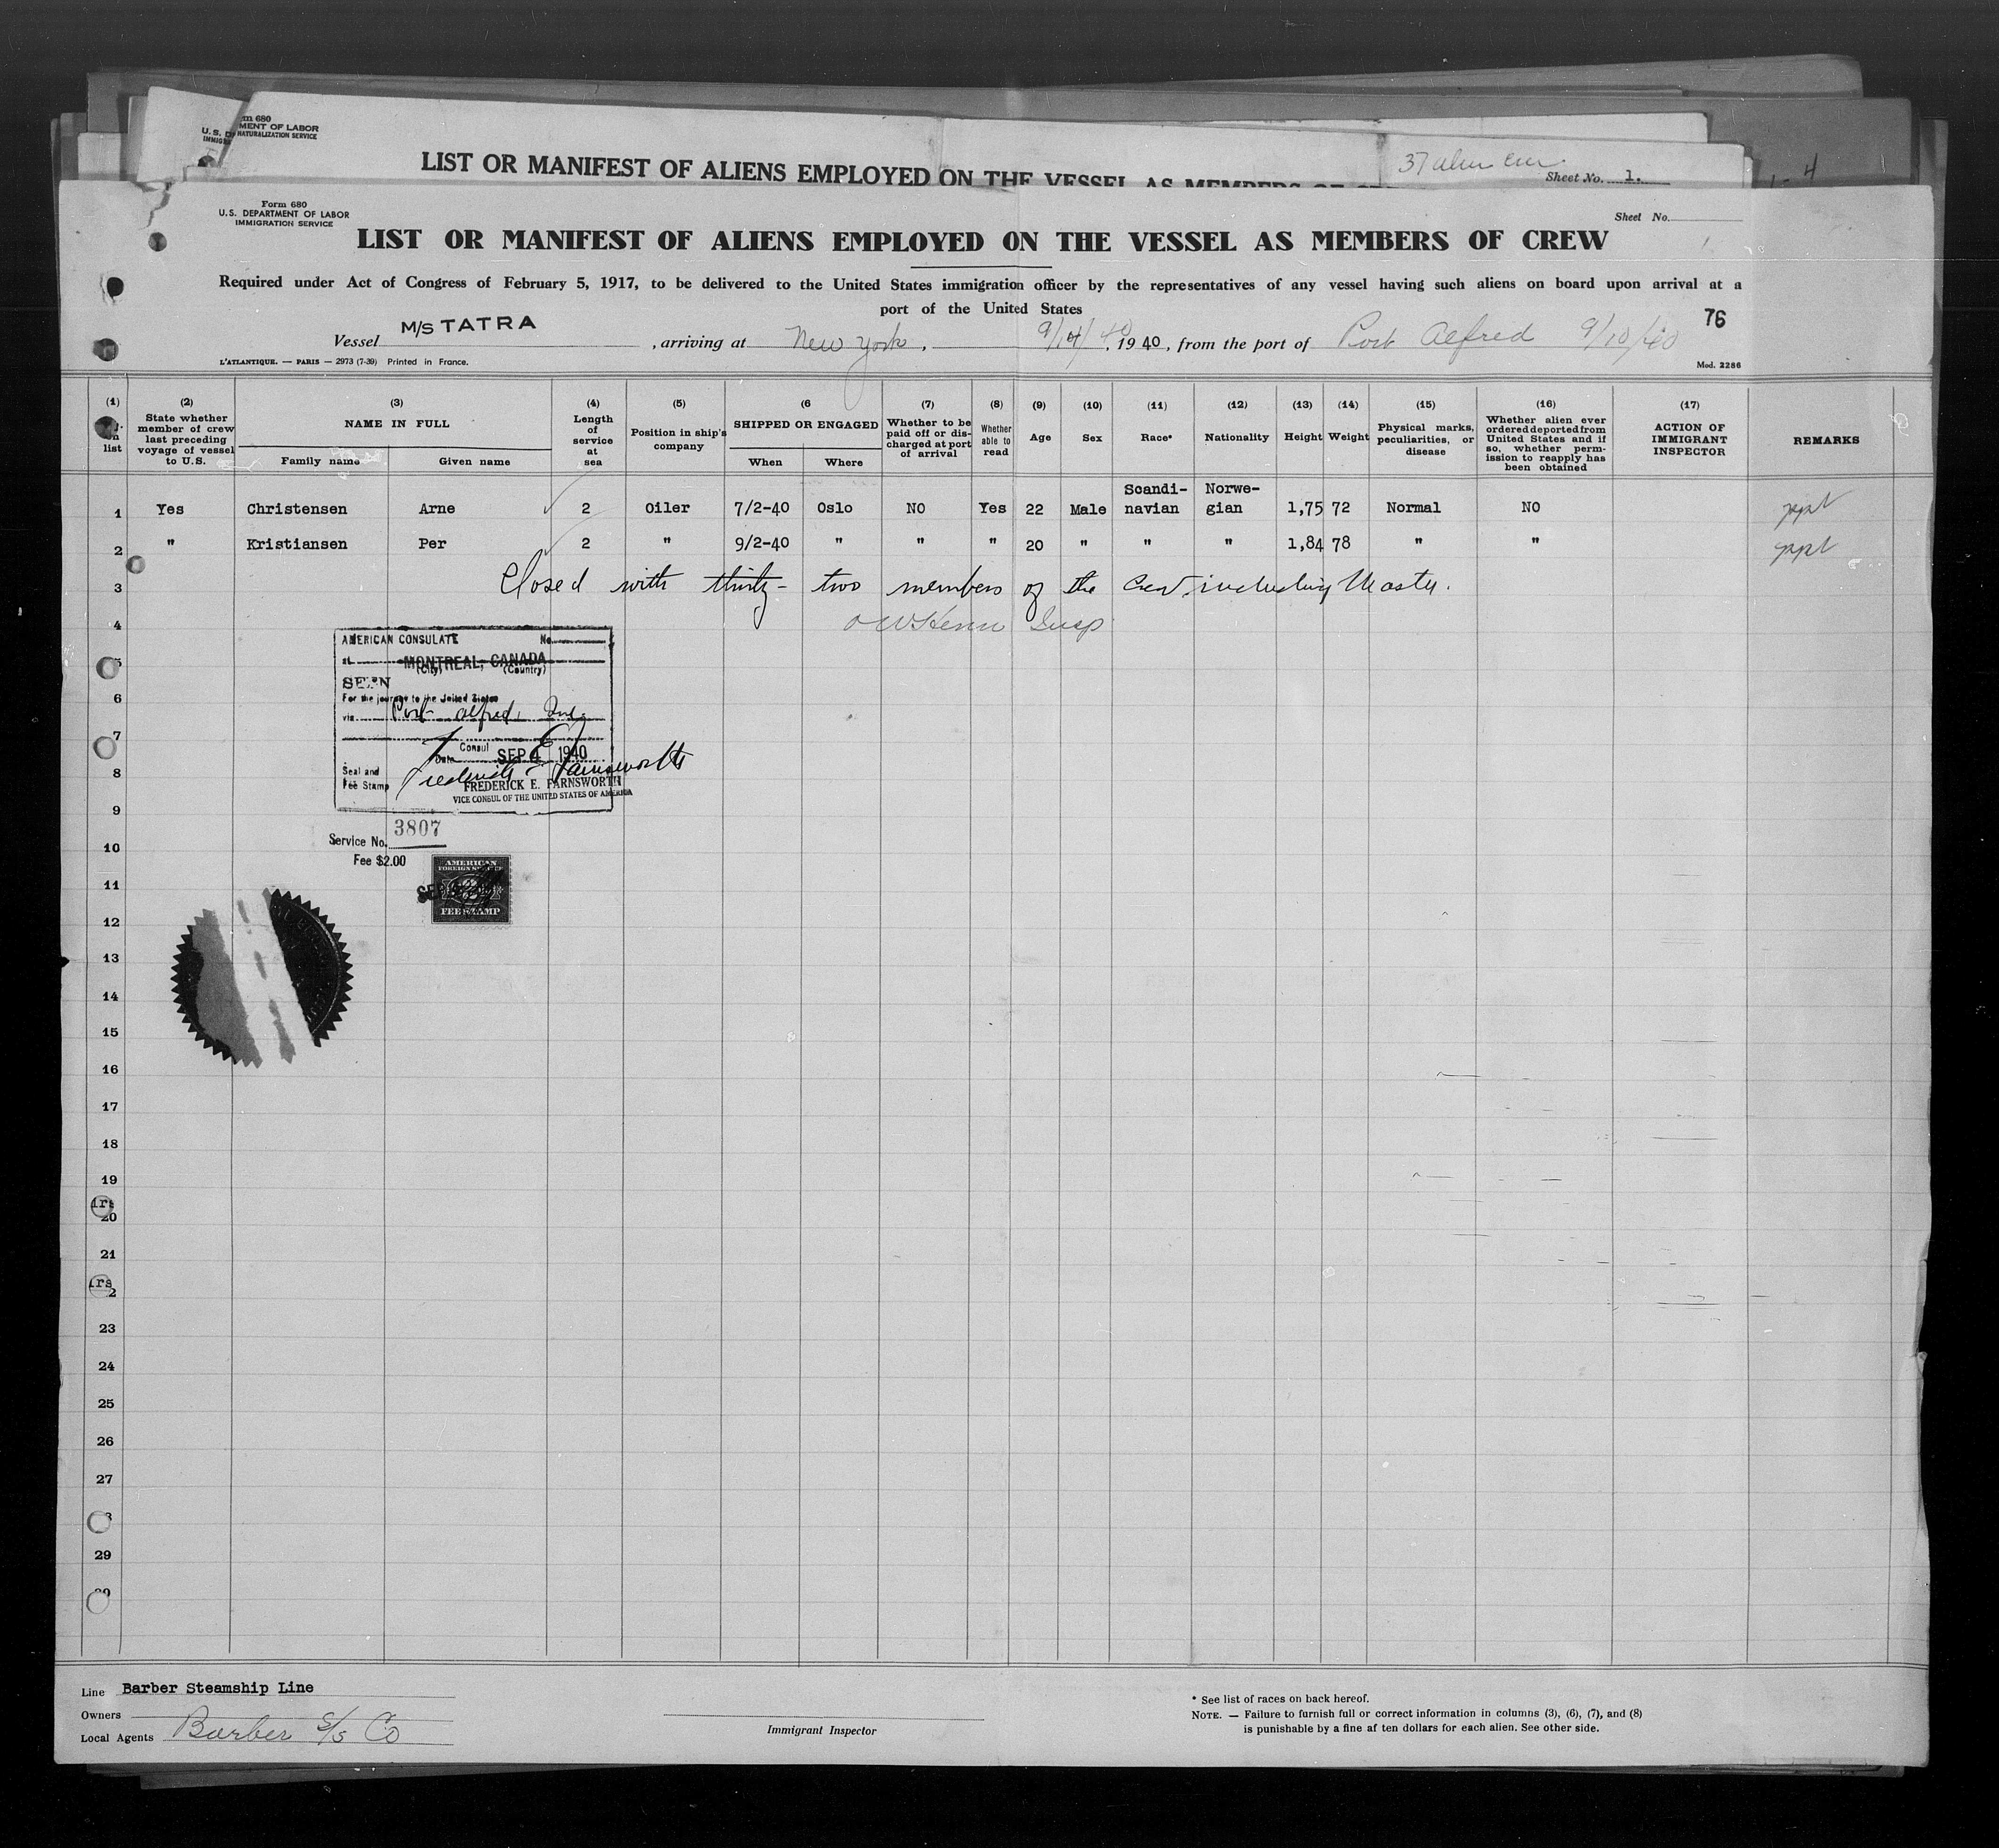 Form 680
U.S. DEPARTMENT OF LABOR
NATURALIZATION SERVICE
LIST OR MANIFEST OF ALIENS EMPLOYED ON THE VESSEL AS MEMBERS OF
37
Sheet No. 1.
4
Form 680
U.S. DEPARTMENT OF LABOR
IMMIGRATION SERVICE
Sheet No.
LIST OR MANIFEST OF ALIENS EMPLOYED ON THE VESSEL AS MEMBERS OF CREW
Required under Act of Congress of February 5, 1917, to be delivered to the United States immigration officer by the representatives of any vessel having such aliens on board upon arrival at a
port of the United States
76
Vessel M/S TATRA, arriving at New York, 9/14/40, 1940, from the port of Port Alfred 9/10/40
L'ATLANTIQUE. — PARIS — 2973 (7-39) Printed in France.
Mod. 2286
(1) list
(2) State whether member of crew last preceding voyage of vessel to U.S.
(3) NAME IN FULL
Family name
Given name
(4) Length of service at sea
(5) Position in ship's company
(6 SHIPPED OR ENGAGED
When
Where
(7) Whether to be paid off or discharged at port of arrival
(8) Whether able to read
(9) Age
(10) Sex
(11) Race*
(12) Nationality
(13) Height
(14) Weight
(15) Physical marks, peculiarities, or disease
(16) Whether alien ever ordered deported from United States and if so, whether permission to reapply has been obtained
(17) ACTION OF IMMIGRANT INSPECTOR
REMARKS
1 Yes Christensen Arne 2 Oiler 7/2-40 Oslo NO Yes 22 Male Scandi-navian Norwe-gian 1,75 72 Normal NO ppt
2 " Kristiansen Per 2 " 9/2-40 " " " 20 " " " 1,84 78 " " ppt
3 Closed with thirty-two members of the crew, including Master.
4 Insp
AMERICAN CONSULATE No.
at MONTREAL, CANADA
(City) (Country)
SEEN
For the journey to the United States
via Port Alfred, Que.
Consul
Date SEP 4 1940
Frederick E Farnsworth
Seal and
Fee Stamp
FREDERICK E. FARNSWORTH
VICE CONSUL OF THE UNITED STATES OF AMERICA
Service No. 3807
Fee $2.00
AMERICAN
FOREIGN SERVICE
FEE STAMP
6
7
8
9
10
11
12
13
14
15
16
17
18
19
20
21
23
24
25
26
27
29
Line Barber Steamship Line
Owners
Local Agents Barber S/S Co
Immigrant Inspector
* See list of races on back hereof.
NOTE. — Failure to furnish full or correct information in columns (3), (6), (7), and (8)
is punishable by a fine af ten dollars for each alien. See other side.